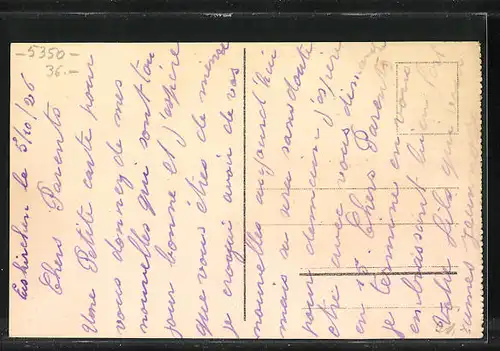 -5350-
36.-
Euskirchen le 3/10/26
Chers Parents
Une Petite carte pour
vous donnez de mes
nouvelles qui sont tou
jour bonne et J'espère
que vous êtes de meme
je croyai avoir de vos
nouvelles aujourd'hui
mais se serai sans doute
pour demain J'espère
etre avec vous dimanche
en 15. Chers Parents
je termine en vous
embrassant bien fort
Votre fils qui